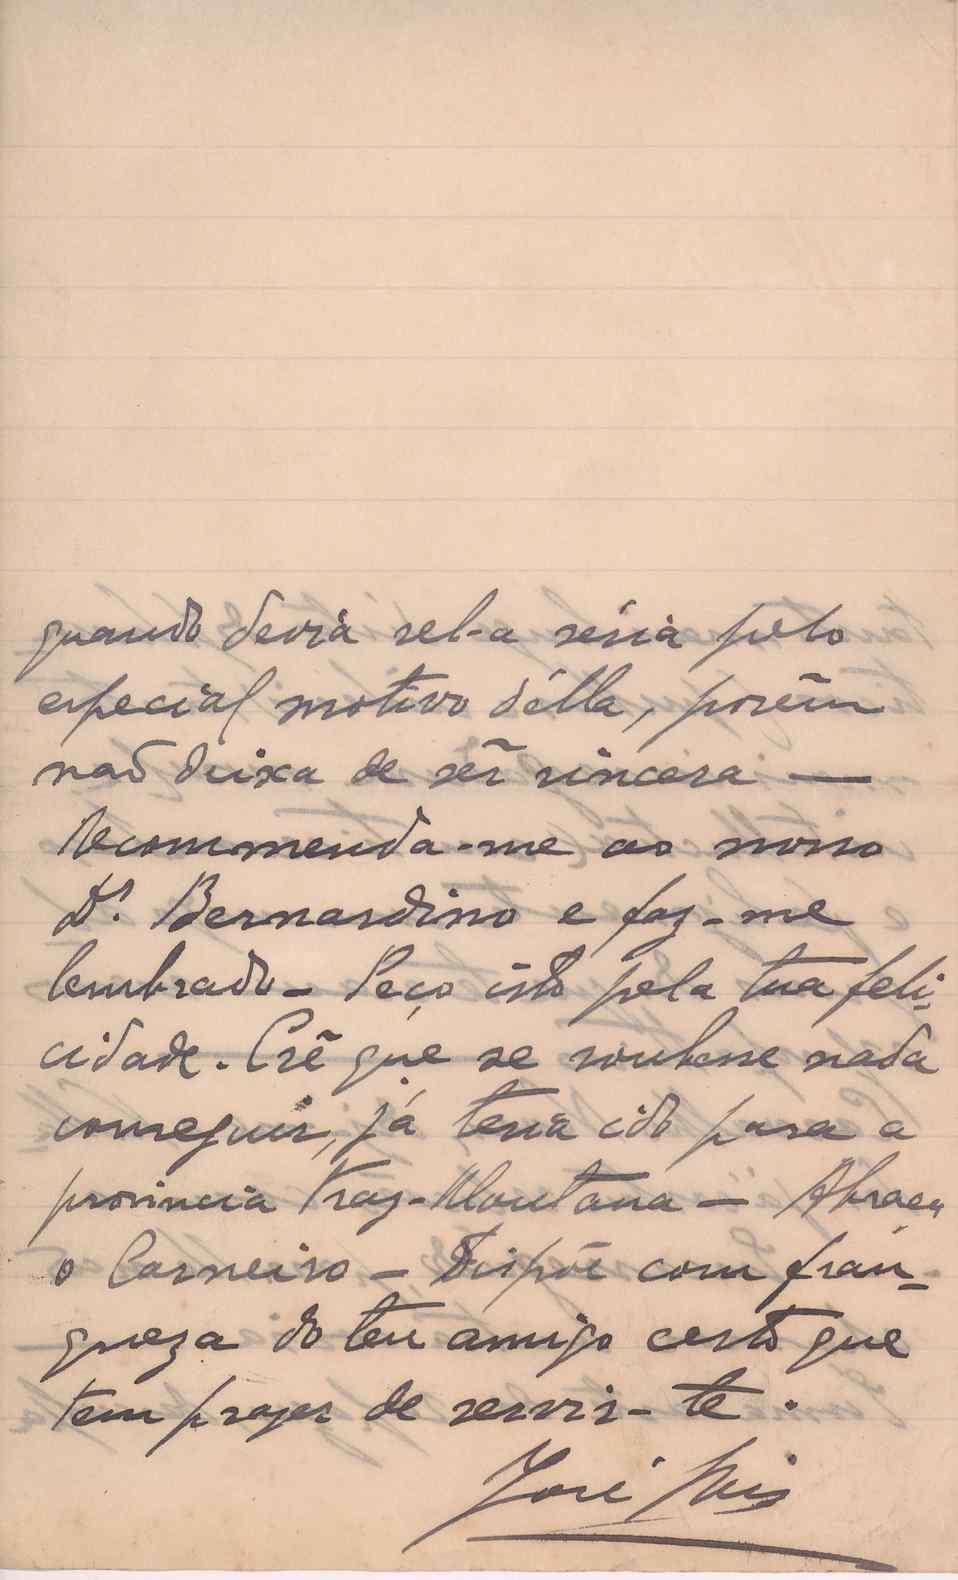 quando devia sel-a séria pelo
especial motivo d'élla, porêm
não deixa de sêr sincera —
Recommenda-me ao nosso
Dr. Bernardino e faz-me
lembrado — Peço isto pela tua feli-
cidade. Crê que se soubesse nada
conseguir, já teria ido para a
provincia Traz-Montana — Abraça
o Carneiro — Dispõe com fran-
queza do teu amigo certo que
tem prazer de servir-te.
José